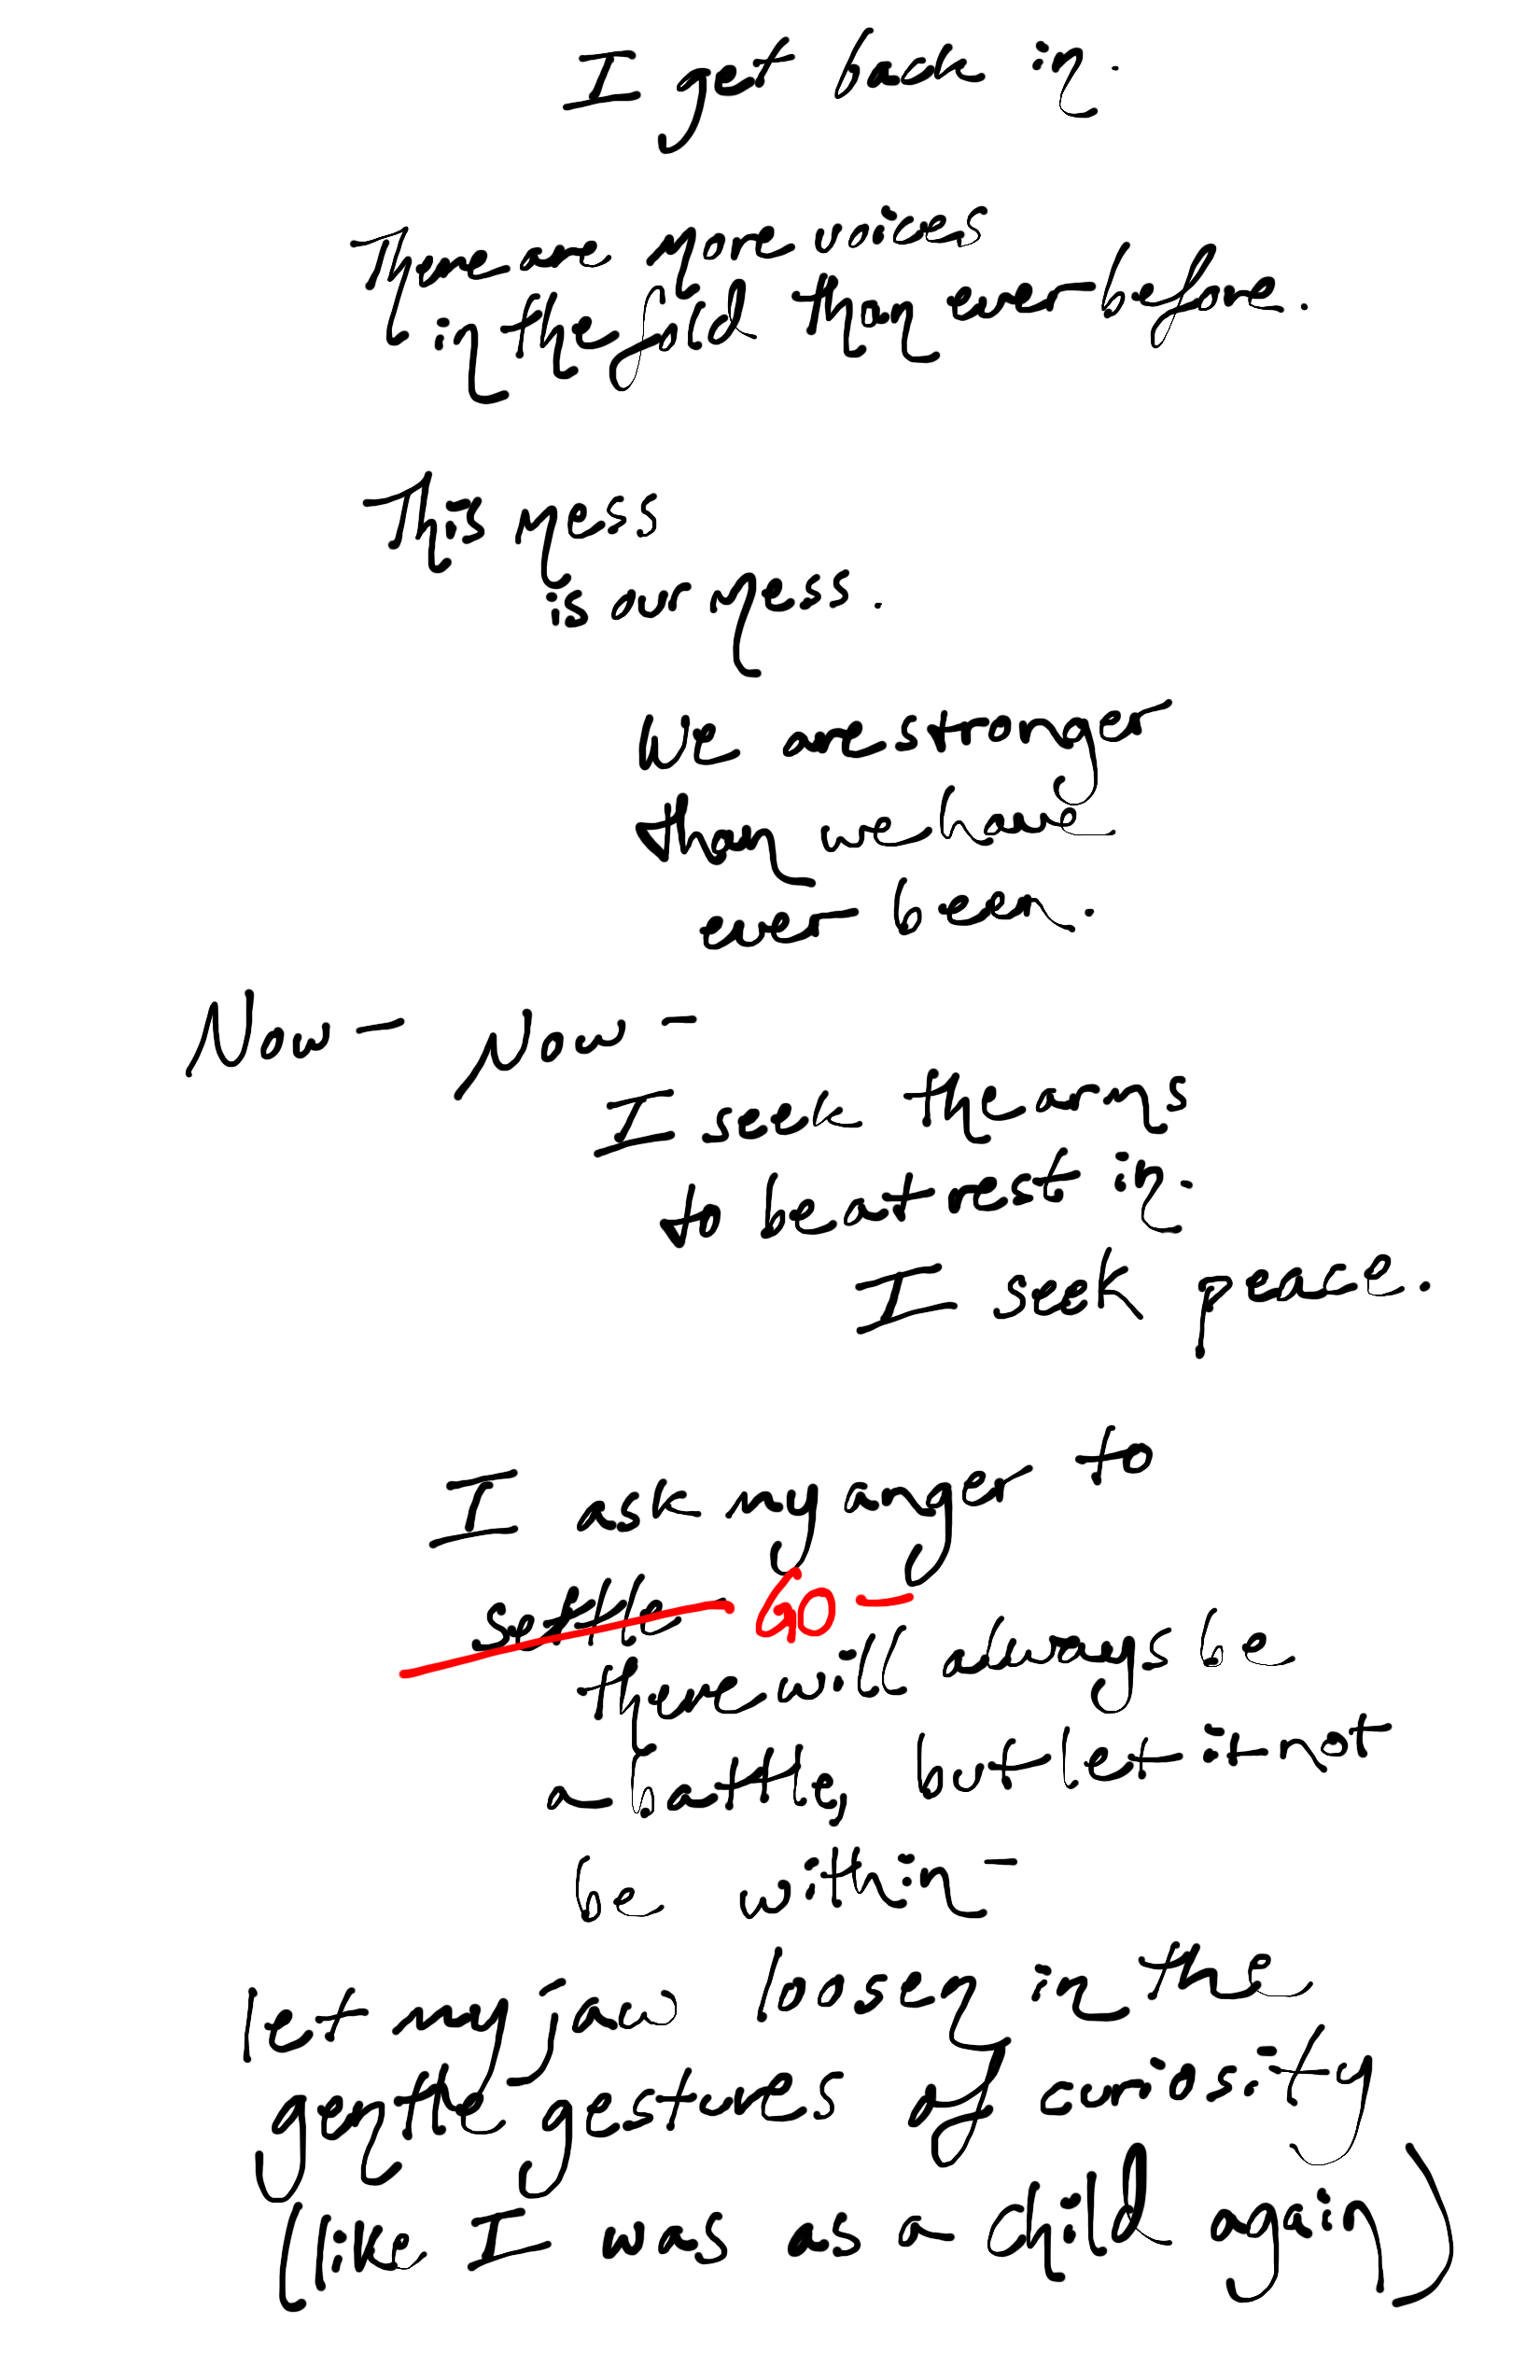 I get back in.
There are more voices
in the fold than ever before.
This mess
is our mess.
We are stronger
than we have
ever been.
Now — Now —
I seek the arms
to be at rest in.
I seek peace.
I ask my anger to
settle GO —
there will always be
a battle, but let it not
be within —
let my jaw loosen in the
gentle gestures of curiosity
(like I was as a child again)